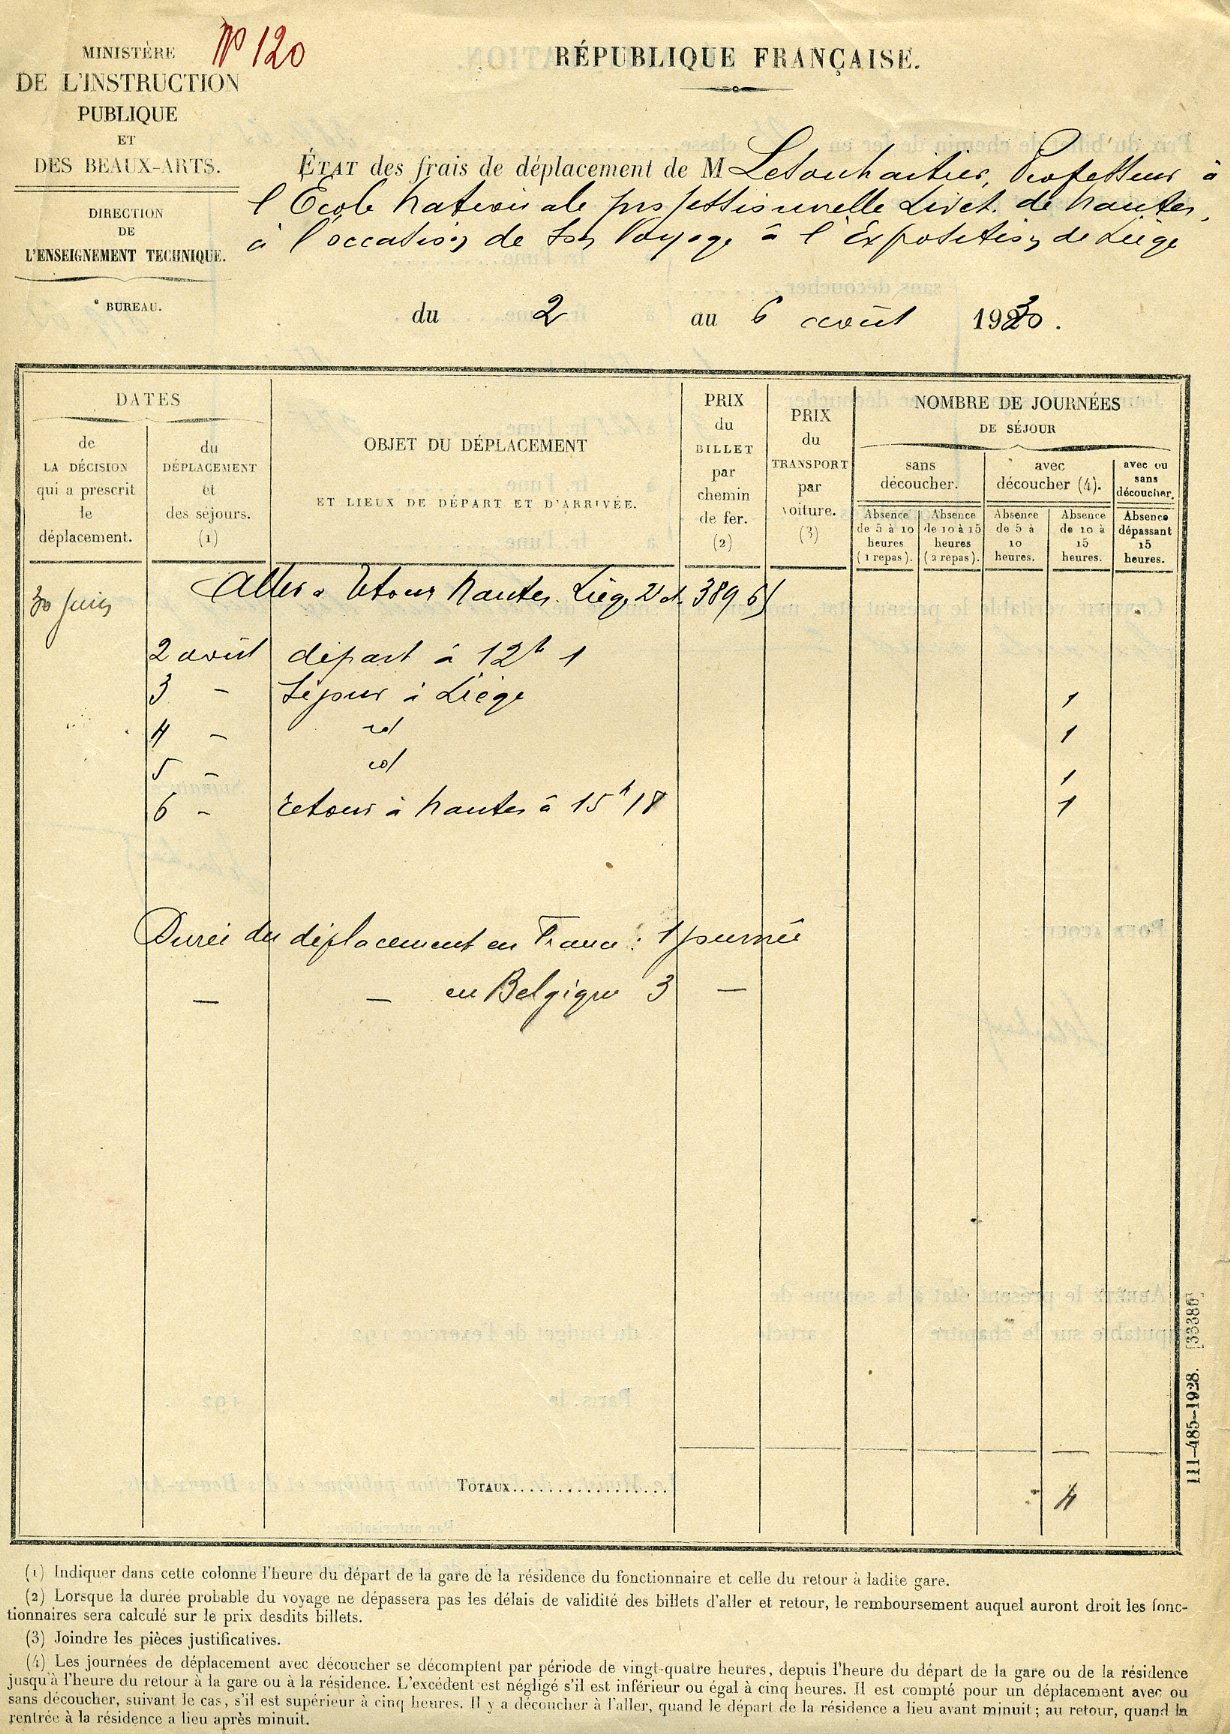 MINISTÈRE
DE L'INSTRUCTION
PUBLIQUE
ET
DES BEAUX-ARTS.
DIRECTION
DE
L'ENSEIGNEMENT TECHNIQUE.
e BUREAU.
N° 120
RÉPUBLIQUE FRANÇAISE.
ÉTAT des frais de déplacement de M Letouhaitier, Professeur à
l'École Nationale professionnelle Livet de Nantes,
à l'occasion de son voyage à l'Exposition de Liège
du 2 au 6 août 1930.
DATES
de
LA DÉCISION
qui a prescrit
le
déplacement.
du
DÉPLACEMENT
et
des séjours.
(1)
OBJET DU DÉPLACEMENT
ET LIEUX DE DÉPART ET D'ARRIVÉE.
PRIX
du
BILLET
par
chemin
de fer.
(2)
PRIX
du
TRANSPORT
par
voiture.
(3)
NOMBRE DE JOURNÉES
DE SÉJOUR
sans
découcher.
avec
découcher (4).
avec ou
sans
découcher.
Absence
de 5 à 10
heures
(1 repas).
Absence
de 10 à 15
heures
(2 repas).
Absence
de 5 à
10
heures.
Absence
de 10 à
15
heures.
Absence
dépassant
15
heures.
30 juin
Aller & retour Nantes-Liège 2e cl. 389 65
2 août départ à 12h 1
3 - Séjour à Liège 1
4 - id 1
5 - id 1
6 - retour à Nantes à 15h 18 1
Durée du déplacement en France : 1 journée
— — en Belgique 3 —
TOTAUX................ 4
111-485-1928. [33386]
(1) Indiquer dans cette colonne l'heure du départ de la gare de la résidence du fonctionnaire et celle du retour à ladite gare.
(2) Lorsque la durée probable du voyage ne dépassera pas les délais de validité des billets d'aller et retour, le remboursement auquel auront droit les fonc-
tionnaires sera calculé sur le prix desdits billets.
(3) Joindre les pièces justificatives.
(4) Les journées de déplacement avec découcher se décomptent par période de vingt-quatre heures, depuis l'heure du départ de la gare ou de la résidence
jusqu'à l'heure du retour à la gare ou à la résidence. L'excédent est négligé s'il est inférieur ou égal à cinq heures. Il est compté pour un déplacement avec ou
sans découcher, suivant le cas, s'il est supérieur à cinq heures. Il y a découcher à l'aller, quand le départ de la résidence a lieu avant minuit; au retour, quand la
rentrée à la résidence a lieu après minuit.